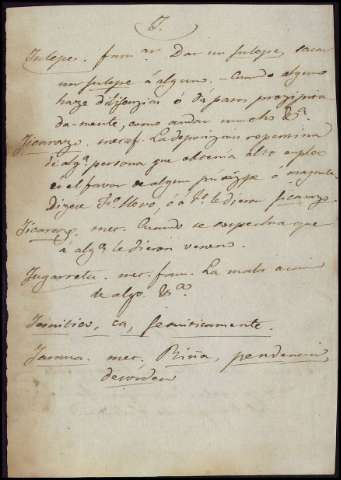 J.
Julepe. fam.ar Dar un julepe, sacar
un julepe á alguno. Cuando alguno
haze dilijenzias ó dá pasos prezipita
damente, como andar mucho &.a
Jicarazo. metaf. La desgrazia repentina
de alg.a persona que obtenia alto empleo
ó el favor de algun prinzipe o magnate
Dizese F.o llevó, ó á F.o le dieron jicarazo.
Jicarazo. met. Quando se sospecha que
á alg.o le dieron veneno.
Jugarreta. met. fam. La mala acción
de algo. &.a
Jesuitico, ca, Jesuiticamente.
Jarana. met. Riña, pendencia,
desorden